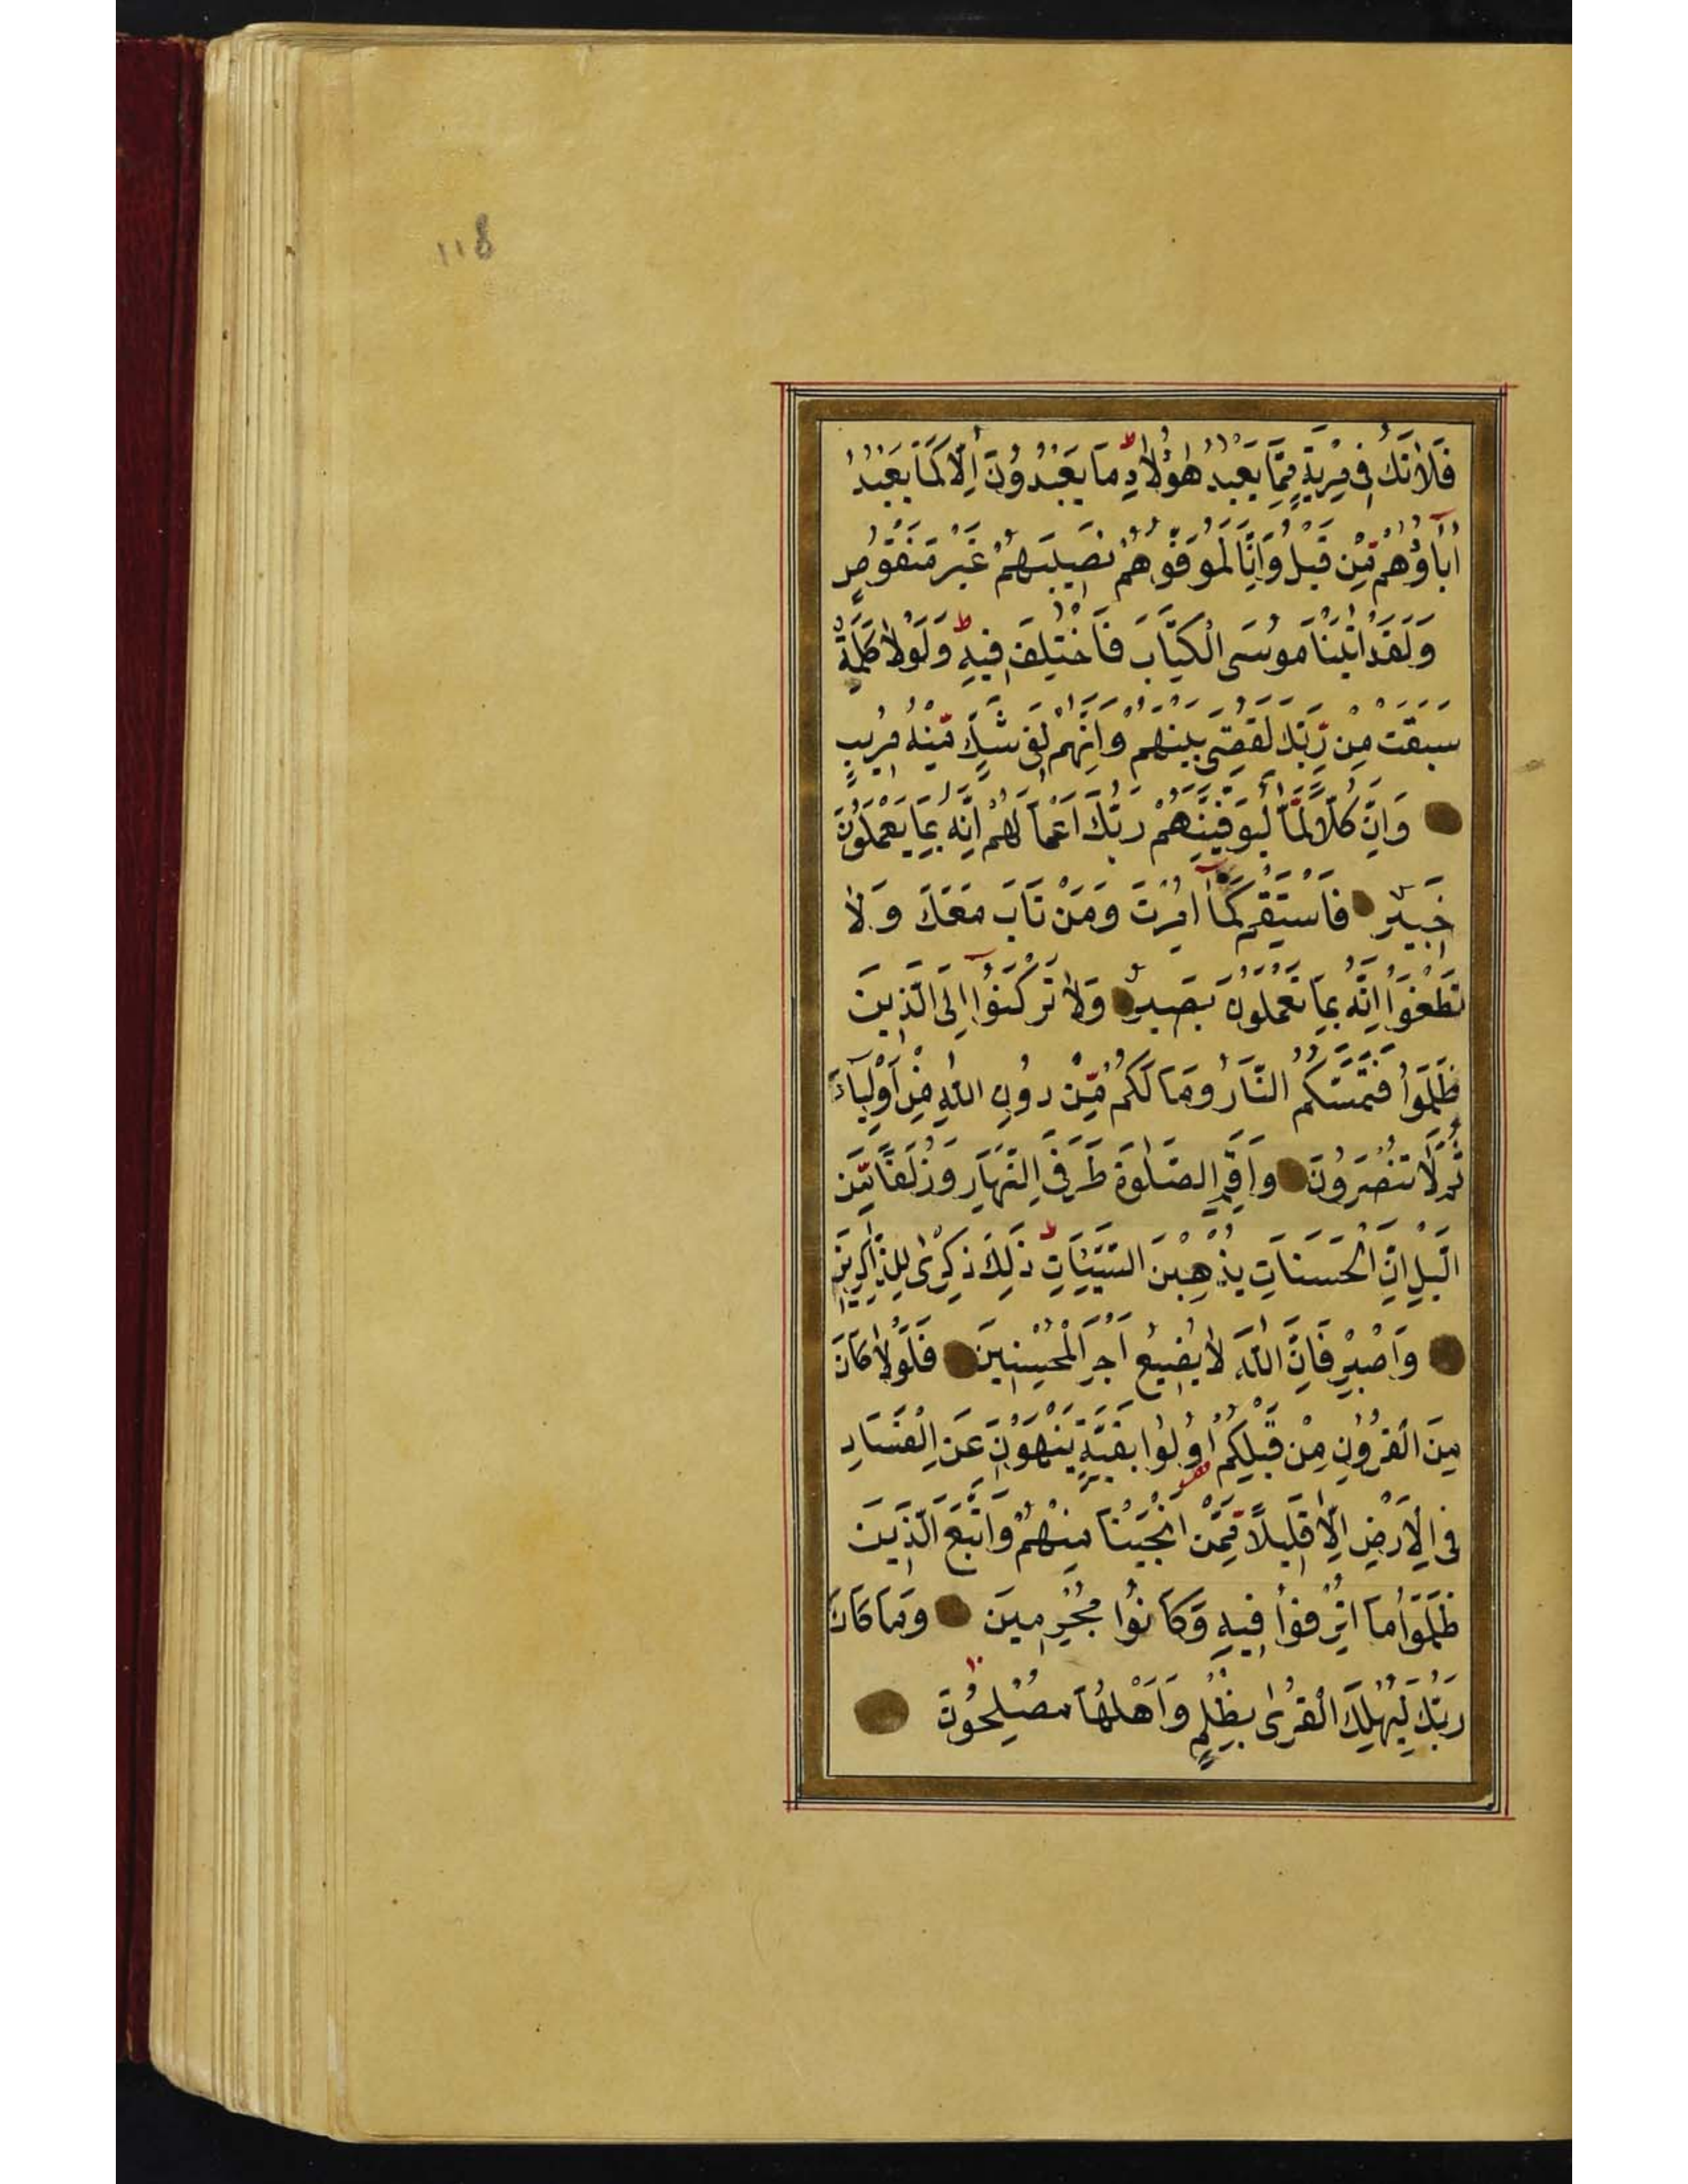 118
فَلَا تَكُ فِي مِرْيَةٍ مِمَّا يَعْبُدُ هٰؤُلَاءِ ط مَا يَعْبُدُونَ اِلَّا كَمَا يَعْبُدُ
اٰبَاؤُهُمْ مِنْ قَبْلُ وَاِنَّا لَمُوَفُّوهُمْ نَصِيبَهُمْ غَيْرَ مَنْقُوصٍ
وَلَقَدْ اٰتَيْنَا مُوسَى الْكِتَابَ فَاخْتُلِفَ فِيهِ ط وَلَوْلَا كَلِمَةٌ
سَبَقَتْ مِنْ رَبِّكَ لَقُضِيَ بَيْنَهُمْ وَاِنَّهُمْ لَفِي شَكٍّ مِنْهُ مُرِيبٍ
وَاِنَّ كُلًّا لَمَّا لَيُوَفِّيَنَّهُمْ رَبُّكَ اَعْمَالَهُمْ اِنَّهُ بِمَا يَعْمَلُونَ
خَبِيرٌ فَاسْتَقِمْ كَمَا اُمِرْتَ وَمَنْ تَابَ مَعَكَ وَلَا
تَطْغَوْا اِنَّهُ بِمَا تَعْمَلُونَ بَصِيرٌ وَلَا تَرْكَنُوا اِلَى الَّذِينَ
ظَلَمُوا فَتَمَسَّكُمُ النَّارُ وَمَا لَكُمْ مِنْ دُونِ اللّٰهِ مِنْ اَوْلِيَاءَ
ثُمَّ لَا تُنْصَرُونَ وَاَقِمِ الصَّلٰوةَ طَرَفَيِ النَّهَارِ وَزُلَفًا مِنَ
الَّيْلِ اِنَّ الْحَسَنَاتِ يُذْهِبْنَ السَّيِّئَاتِ ط ذٰلِكَ ذِكْرٰى لِلذَّاكِرِينَ
وَاصْبِرْ فَاِنَّ اللّٰهَ لَا يُضِيعُ اَجْرَ الْمُحْسِنِينَ فَلَوْلَا كَانَ
مِنَ الْقُرُونِ مِنْ قَبْلِكُمْ اُولُوا بَقِيَّةٍ يَنْهَوْنَ عَنِ الْفَسَادِ
فِي الْاَرْضِ اِلَّا قَلِيلًا مِمَّنْ اَنْجَيْنَا مِنْهُمْ وَاتَّبَعَ الَّذِينَ
ظَلَمُوا مَا اُتْرِفُوا فِيهِ وَكَانُوا مُجْرِمِينَ وَمَا كَانَ
رَبُّكَ لِيُهْلِكَ الْقُرٰى بِظُلْمٍ وَاَهْلُهَا مُصْلِحُونَ